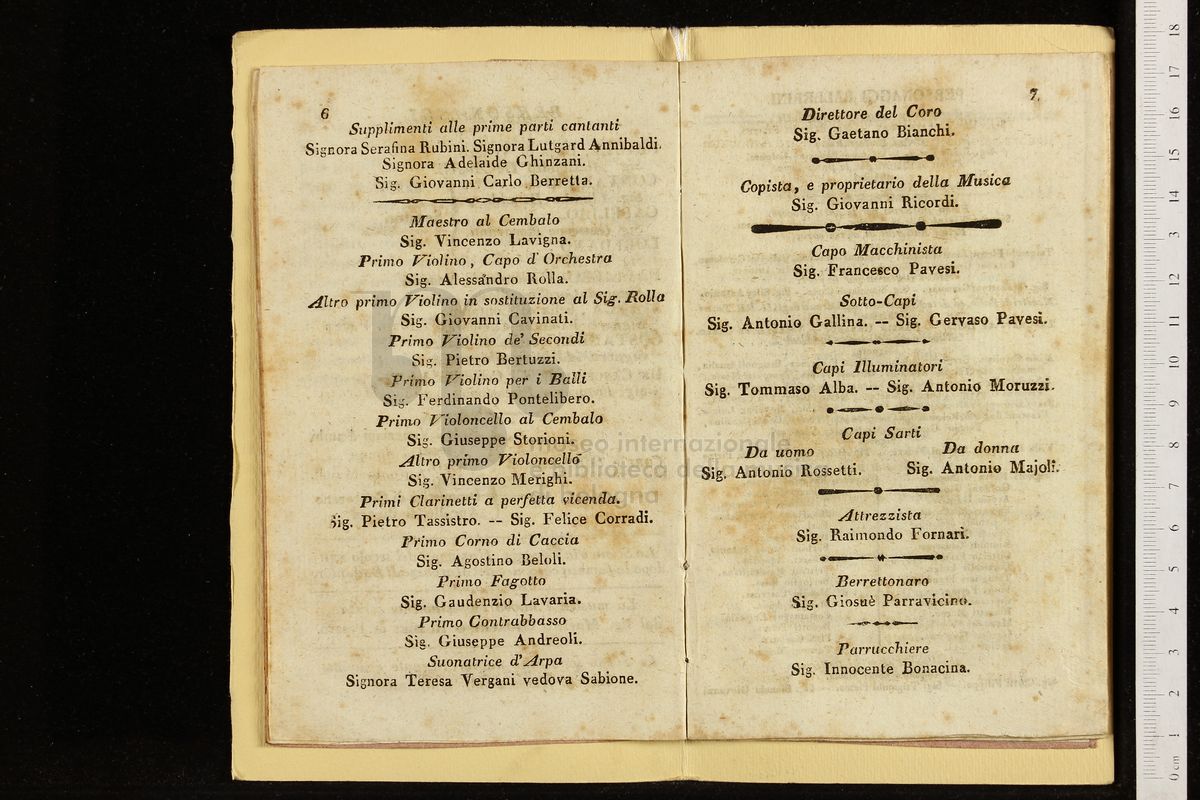 6
Supplimenti alle prime parti cantanti
Signora Serafina Rubini. Signora Lutgard Annibaldi.
Signora Adelaide Ghinzani.
Sig. Giovanni Carlo Berretta.
Maestro al Cembalo
Sig. Vincenzo Lavigna.
Primo Violino, Capo d' Orchestra
Sig. Alessandro Rolla.
Altro primo Violino in sostituzione al Sig. Rolla
Sig. Giovanni Cavinati.
Primo Violino de' Secondi
Sig. Pietro Bertuzzi.
Primo Violino per i Balli
Sig. Ferdinando Pontelibero.
Primo Violoncello al Cembalo
Sig. Giuseppe Storioni.
Altro primo Violoncello
Sig. Vincenzo Merighi.
Primi Clarinetti a perfetta vicenda.
Sig. Pietro Tassistro. -- Sig. Felice Corradi.
Primo Corno di Caccia
Sig. Agostino Beloli.
Primo Fagotto
Sig. Gaudenzio Lavaria.
Primo Contrabbasso
Sig. Giuseppe Andreoli.
Suonatrice d' Arpa
Signora Teresa Vergani vedova Sabione.
7.
Direttore del Coro
Sig. Gaetano Bianchi.
Copista, e proprietario della Musica
Sig. Giovanni Ricordi.
Capo Macchinista
Sig. Francesco Pavesi.
Sotto-Capi
Sig. Antonio Gallina. -- Sig. Gervaso Pavesi.
Capi Illuminatori
Sig. Tommaso Alba. -- Sig. Antonio Moruzzi.
Capi Sarti
Da uomo Da donna
Sig. Antonio Rossetti. Sig. Antonio Majoli.
Attrezzista
Sig. Raimondo Fornari.
Berrettonaro
Sig. Giosuè Parravicino.
Parrucchiere
Sig. Innocente Bonacina.
internazionale
biblioteca
0 cm 1 2 3 4 5 6 7 8 9 10 11 12 13 14 15 16 17 18